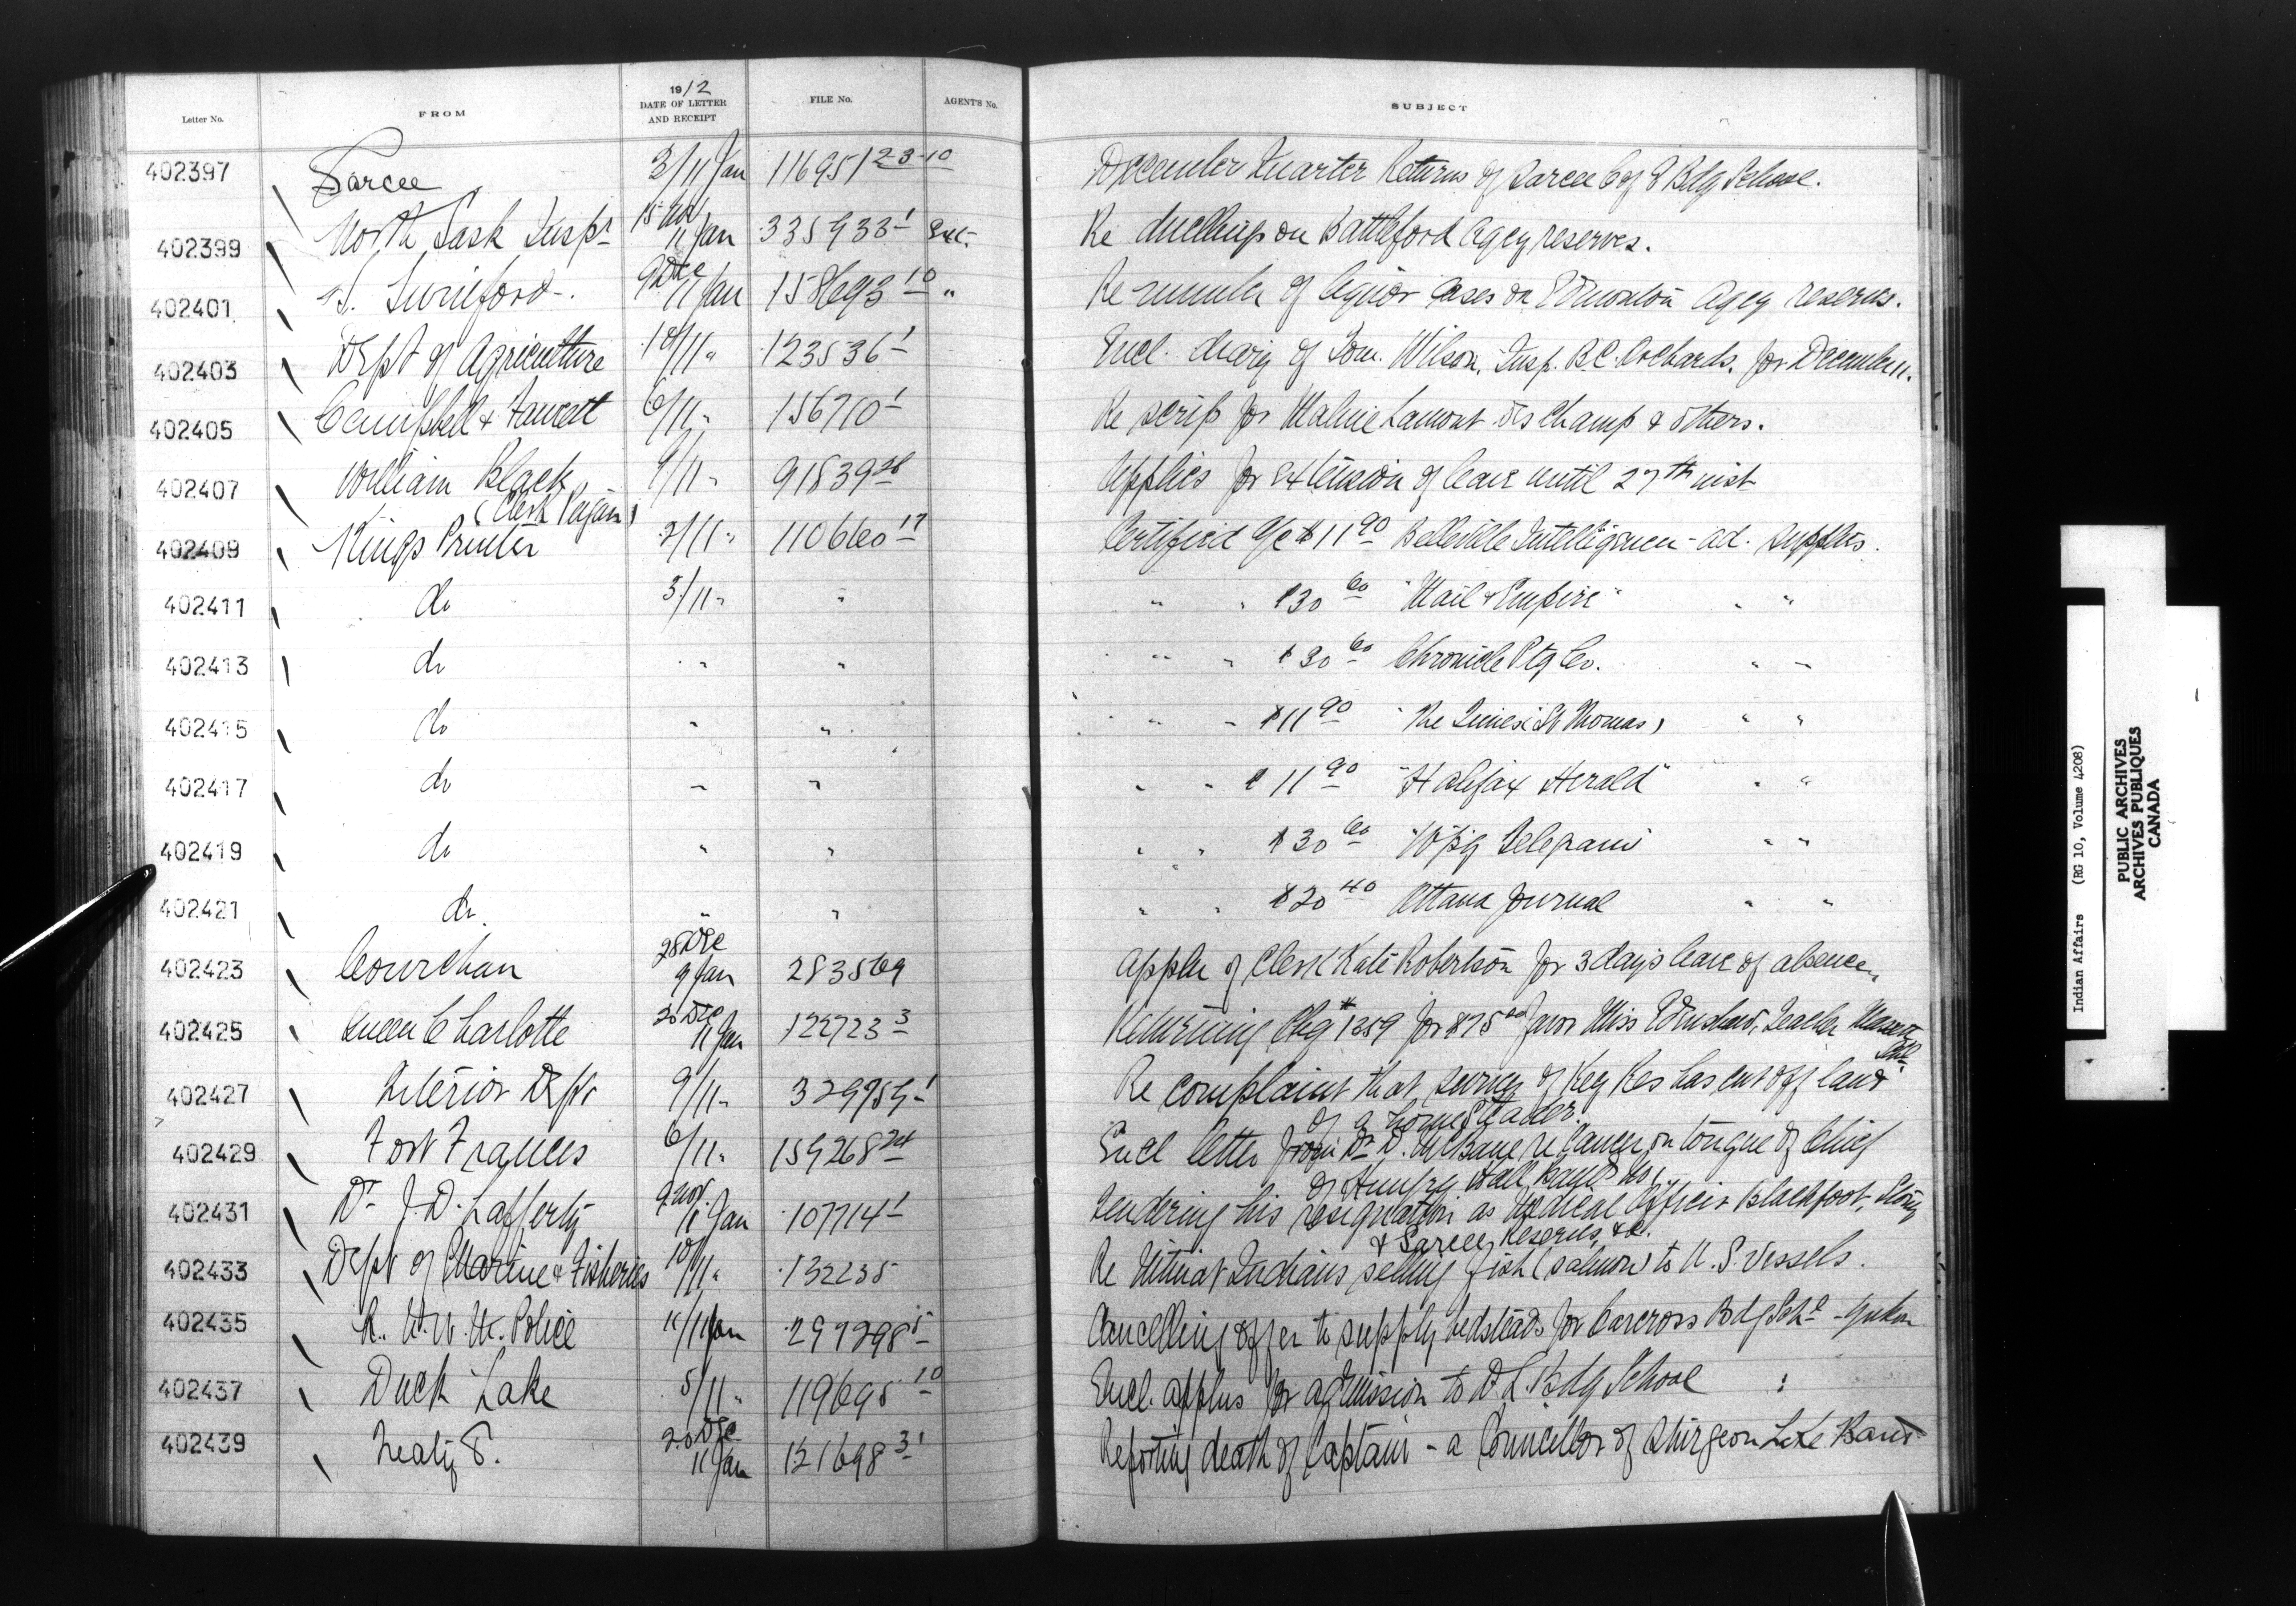 1912
Letter No. FROM DATE OF LETTER AND RECEIPT FILE No. AGENT'S No. SUBJECT
402397 Sarcee 3/11 Jan 116951 23-10 December Quarter Returns of Sarcee C of E Bdg School.
402399 North Sask Inspr 11 Jan 335933 1 Re dwellings on Battleford Agcy reserves.
402401 S. Swinford 9 Dec 11 Jan 158693 10 " Re number of liquor cases on Edmonton Agcy reserves.
402403 Dept of Agriculture 10/11 " 123536 1 Encl. diary of Tom. Wilson, Insp. B.C. Orchards, for December 11.
402405 Campbell & Fawcett 6/11 " 156710 1 Re scrip for Lamont Des Champ & others.
402407 William Black 9/11 " 91839 28 Applies for extension of leave until 27th inst
(Clerk Pagan)
402409 Kings Printer 2/11 " 110660 17 Certified a/c $11 90 Belleville Intelligencer - ad. supplies.
402411 do 5/11 " " " " $30 60 "Mail & Empire" " "
402413 do " " " " $30 60 Chronicle Ptg Co. " "
402415 do " " " " $11 90 "The Times (St Thomas) " "
402417 do " " " " $11 90 "Halifax Herald" " "
402419 do " " " " $30 60 "Wpg Telegram " "
402421 do. " " " " $20 40 Ottawa Journal " "
402423 Cowichan 28 Dec 9 Jan 283569 Appln of Clerk Kate Robertson for 3 days leave of absence.
402425 Queen Charlotte 30 Dec 11 Jan 122723 3 Returning Chq # 1259 for $75 00 favor Miss Teacher Massett
402427 Interior Dept 9/11 " 329759 1 Re complaint that survey of Key Res has cut off land
of a homesteader.
402429 Fort Frances 6/11 " 159268 24 Encl letter from Dr D. McBane re Cancer on tongue of Chief
of Hungry Hall Band No 1
402431 Dr J. D. Lafferty 9 Nov. 11 Jan 107714 1 Tendering his resignation as Medical Officer Blackfoot, Stony
& Sarcee Reserves, &c.
402433 Dept of Marine & Fisheries 10/11 " 132235 Re Kitimat Indians selling fish (salmon) to U. S. Vessels.
402435 R. N. W. M. Police 11/11 Jan 297298 5 Cancelling offer to supply bedsteads for Carcross Bdg Schl - Yukon
402437 Duck Lake 5/11 " 119695 10 Encl. applns for admission to D L. Bdg School
402439 Treaty 8. 20 Dec 11 Jan 121698 31 Reporting death of Captain - a Councillor of Sturgeon Lake Band
Indian Affairs (RG 10, Volume 4208)
PUBLIC ARCHIVES
ARCHIVES PUBLIQUES
CANADA